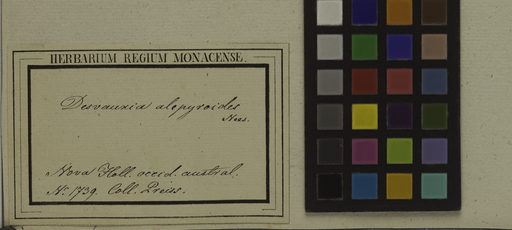 HERBARIUM REGIUM MONACENSE.
Desvauxia alepyroides
Nees.
Nova Holl. occid. austral.
N. 1739. Coll. Preiss.